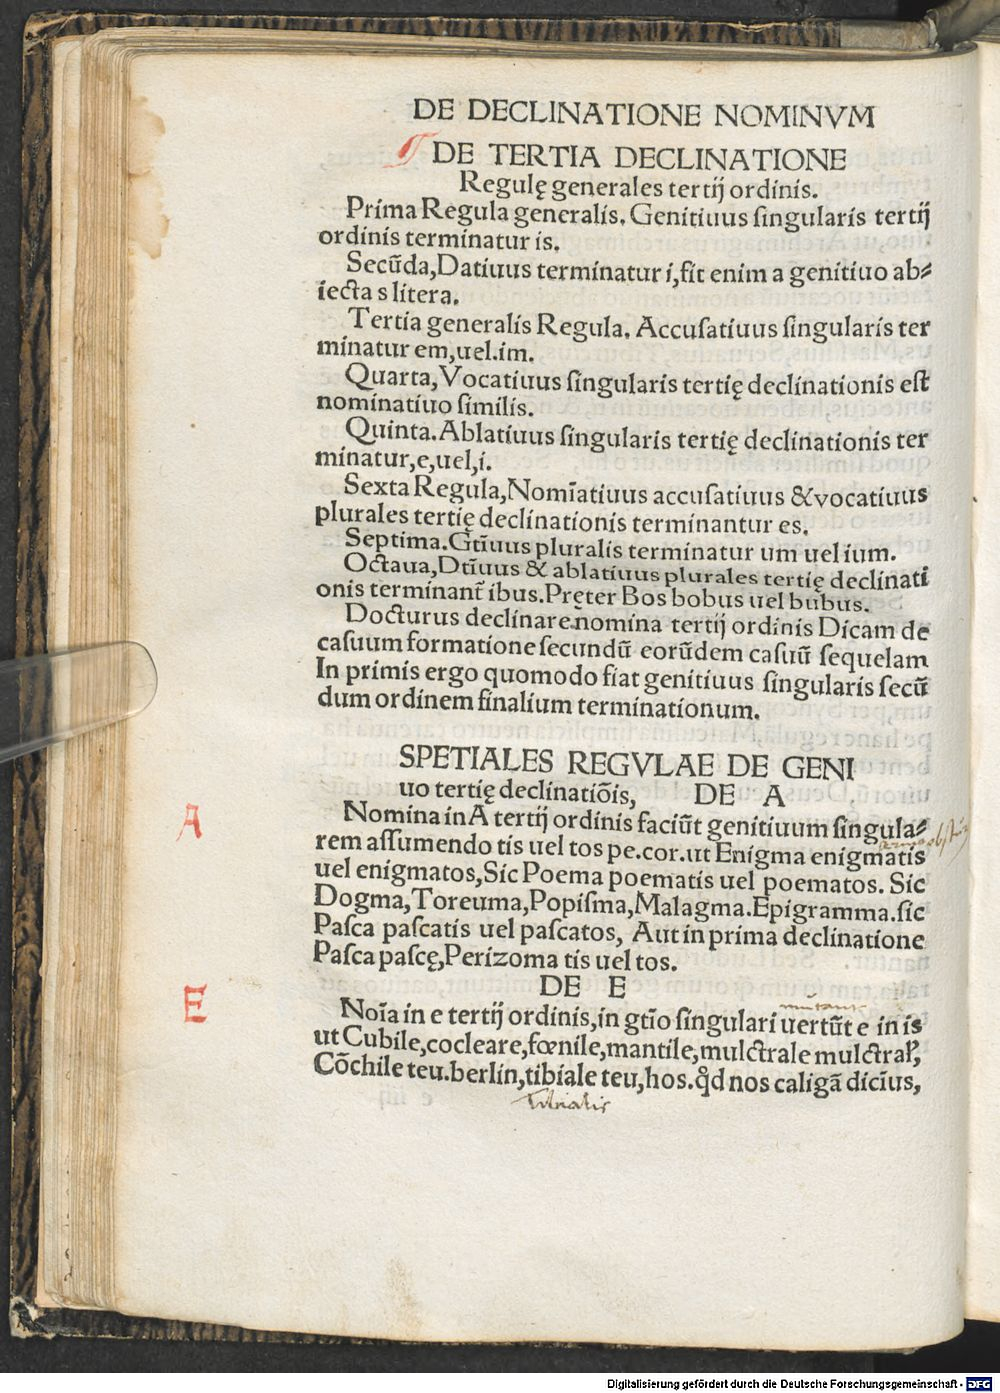 DE DECLINATIONE NOMINVM
DE TERTIA DECLINATIONE
Regulę generales tertij ordinis.
Prima Regula generalis. Genitiuus ſingularis tertij
ordinis terminatur is.
Secūda, Datiuus terminatur i, fit enim a genitiuo ab⸗
iecta s litera.
Tertia generalis Regula. Accuſatiuus ſingularis ter
minatur em, uel.im.
Quarta, Vocatiuus ſingularis tertię declinationis eſt
nominatiuo ſimilis.
Quinta. Ablatiuus ſingularis tertię declinationis ter
minatur, e, uel, i.
Sexta Regula, Nomīatiuus accuſatiuus & vocatiuus
plurales tertię declinationis terminantur es.
Septima. Gtūuus pluralis terminatur um uel ium.
Octaua, Dtīuus & ablatiuus plurales tertię declinati
onis terminanť ibus. Pręter Bos bobus uel bubus.
Docturus declinare nomina tertij ordinis Dicam de
caſuum formatione ſecundū eorūdem caſuū ſequelam
In primis ergo quomodo fiat genitiuus ſingularis ſecū
dum ordinem finalium terminationum.
SPETIALES REGVLAE DE GENI
uo tertię declinatiōis, DE A
A
Nomina in A tertij ordinis faciūt genitiuum ſingula⸗
rem aſſumendo tis uel tos pe.cor.ut Enigma enigmatis
uel enigmatos, Sic Poema poematis uel poematos. Sic
Dogma, Toreuma, Popiſma, Malagma. Epigramma. ſic
Paſca paſcatis uel paſcatos, Aut in prima declinatione
Paſca paſcę, Perizoma tis uel tos.
DE E
mutant
E
Noīa in e tertij ordinis, in gtīo ſingulari uertūt e in is
ut Cubile, cocleare, fœnile, mantile, mulctrale mulctraꝶ,
Cōchile teu. berlin, tibiale teu, hos. qd nos caligā diciūs,
Tibialis
Digitalisierung gefördert durch die Deutsche Forschungsgemeinschaft - DFG